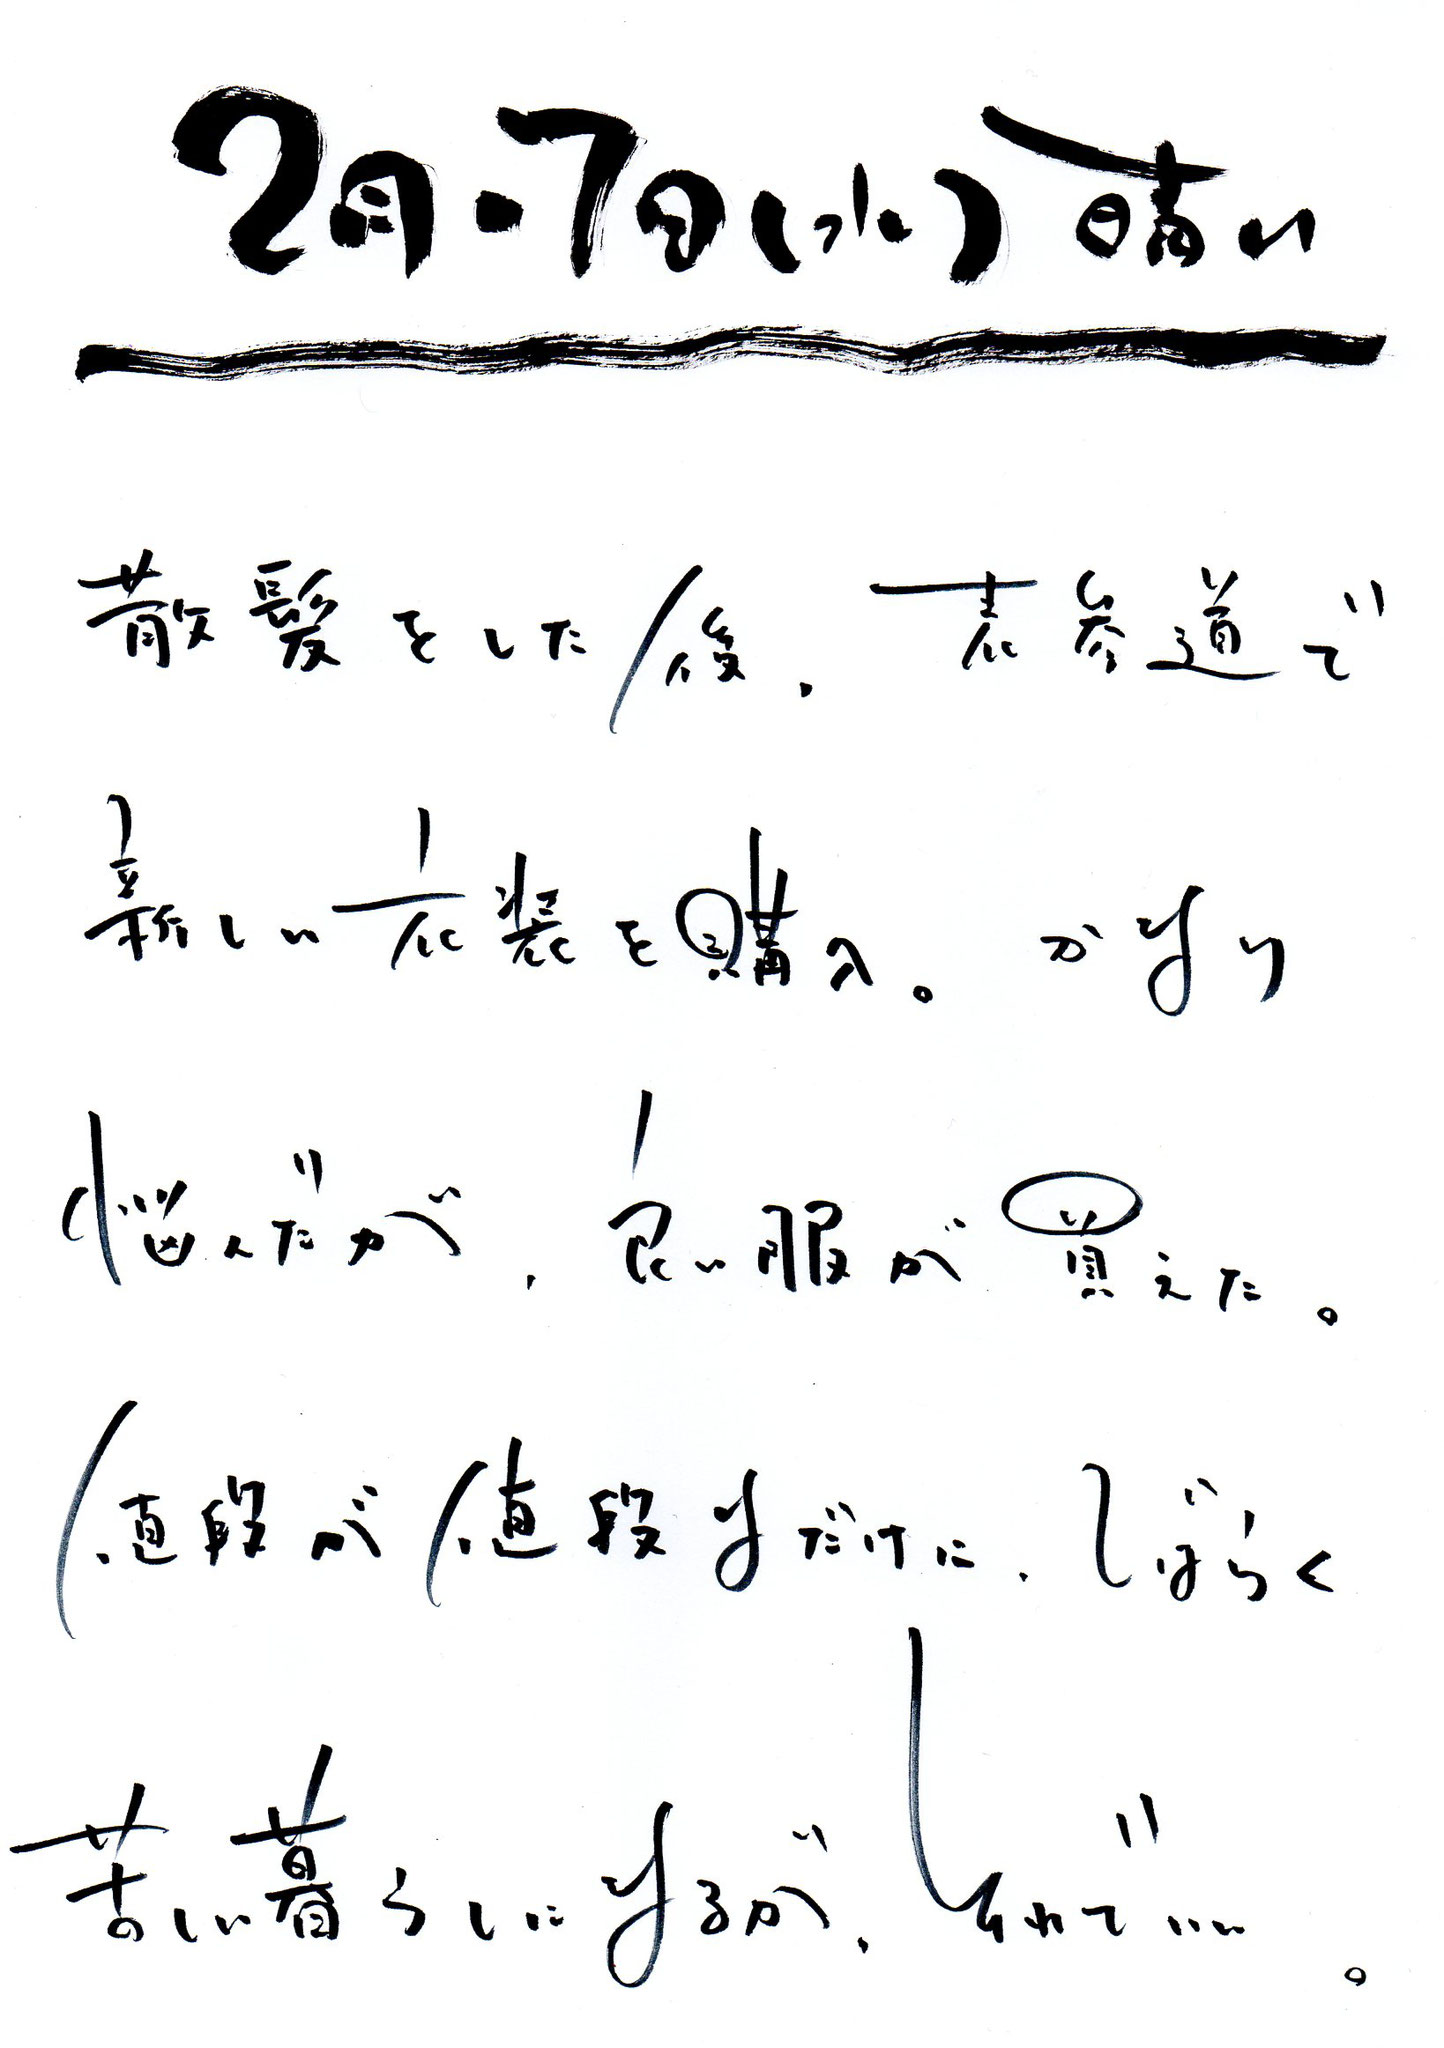 2月・7日(水) 晴い
散髪をした後、表参道で
新しい衣装を購入。かなり
悩んだが、良い服が買えた。
値段が値段なだけに、しばらく
苦しい暮らしになるが、それでいい。